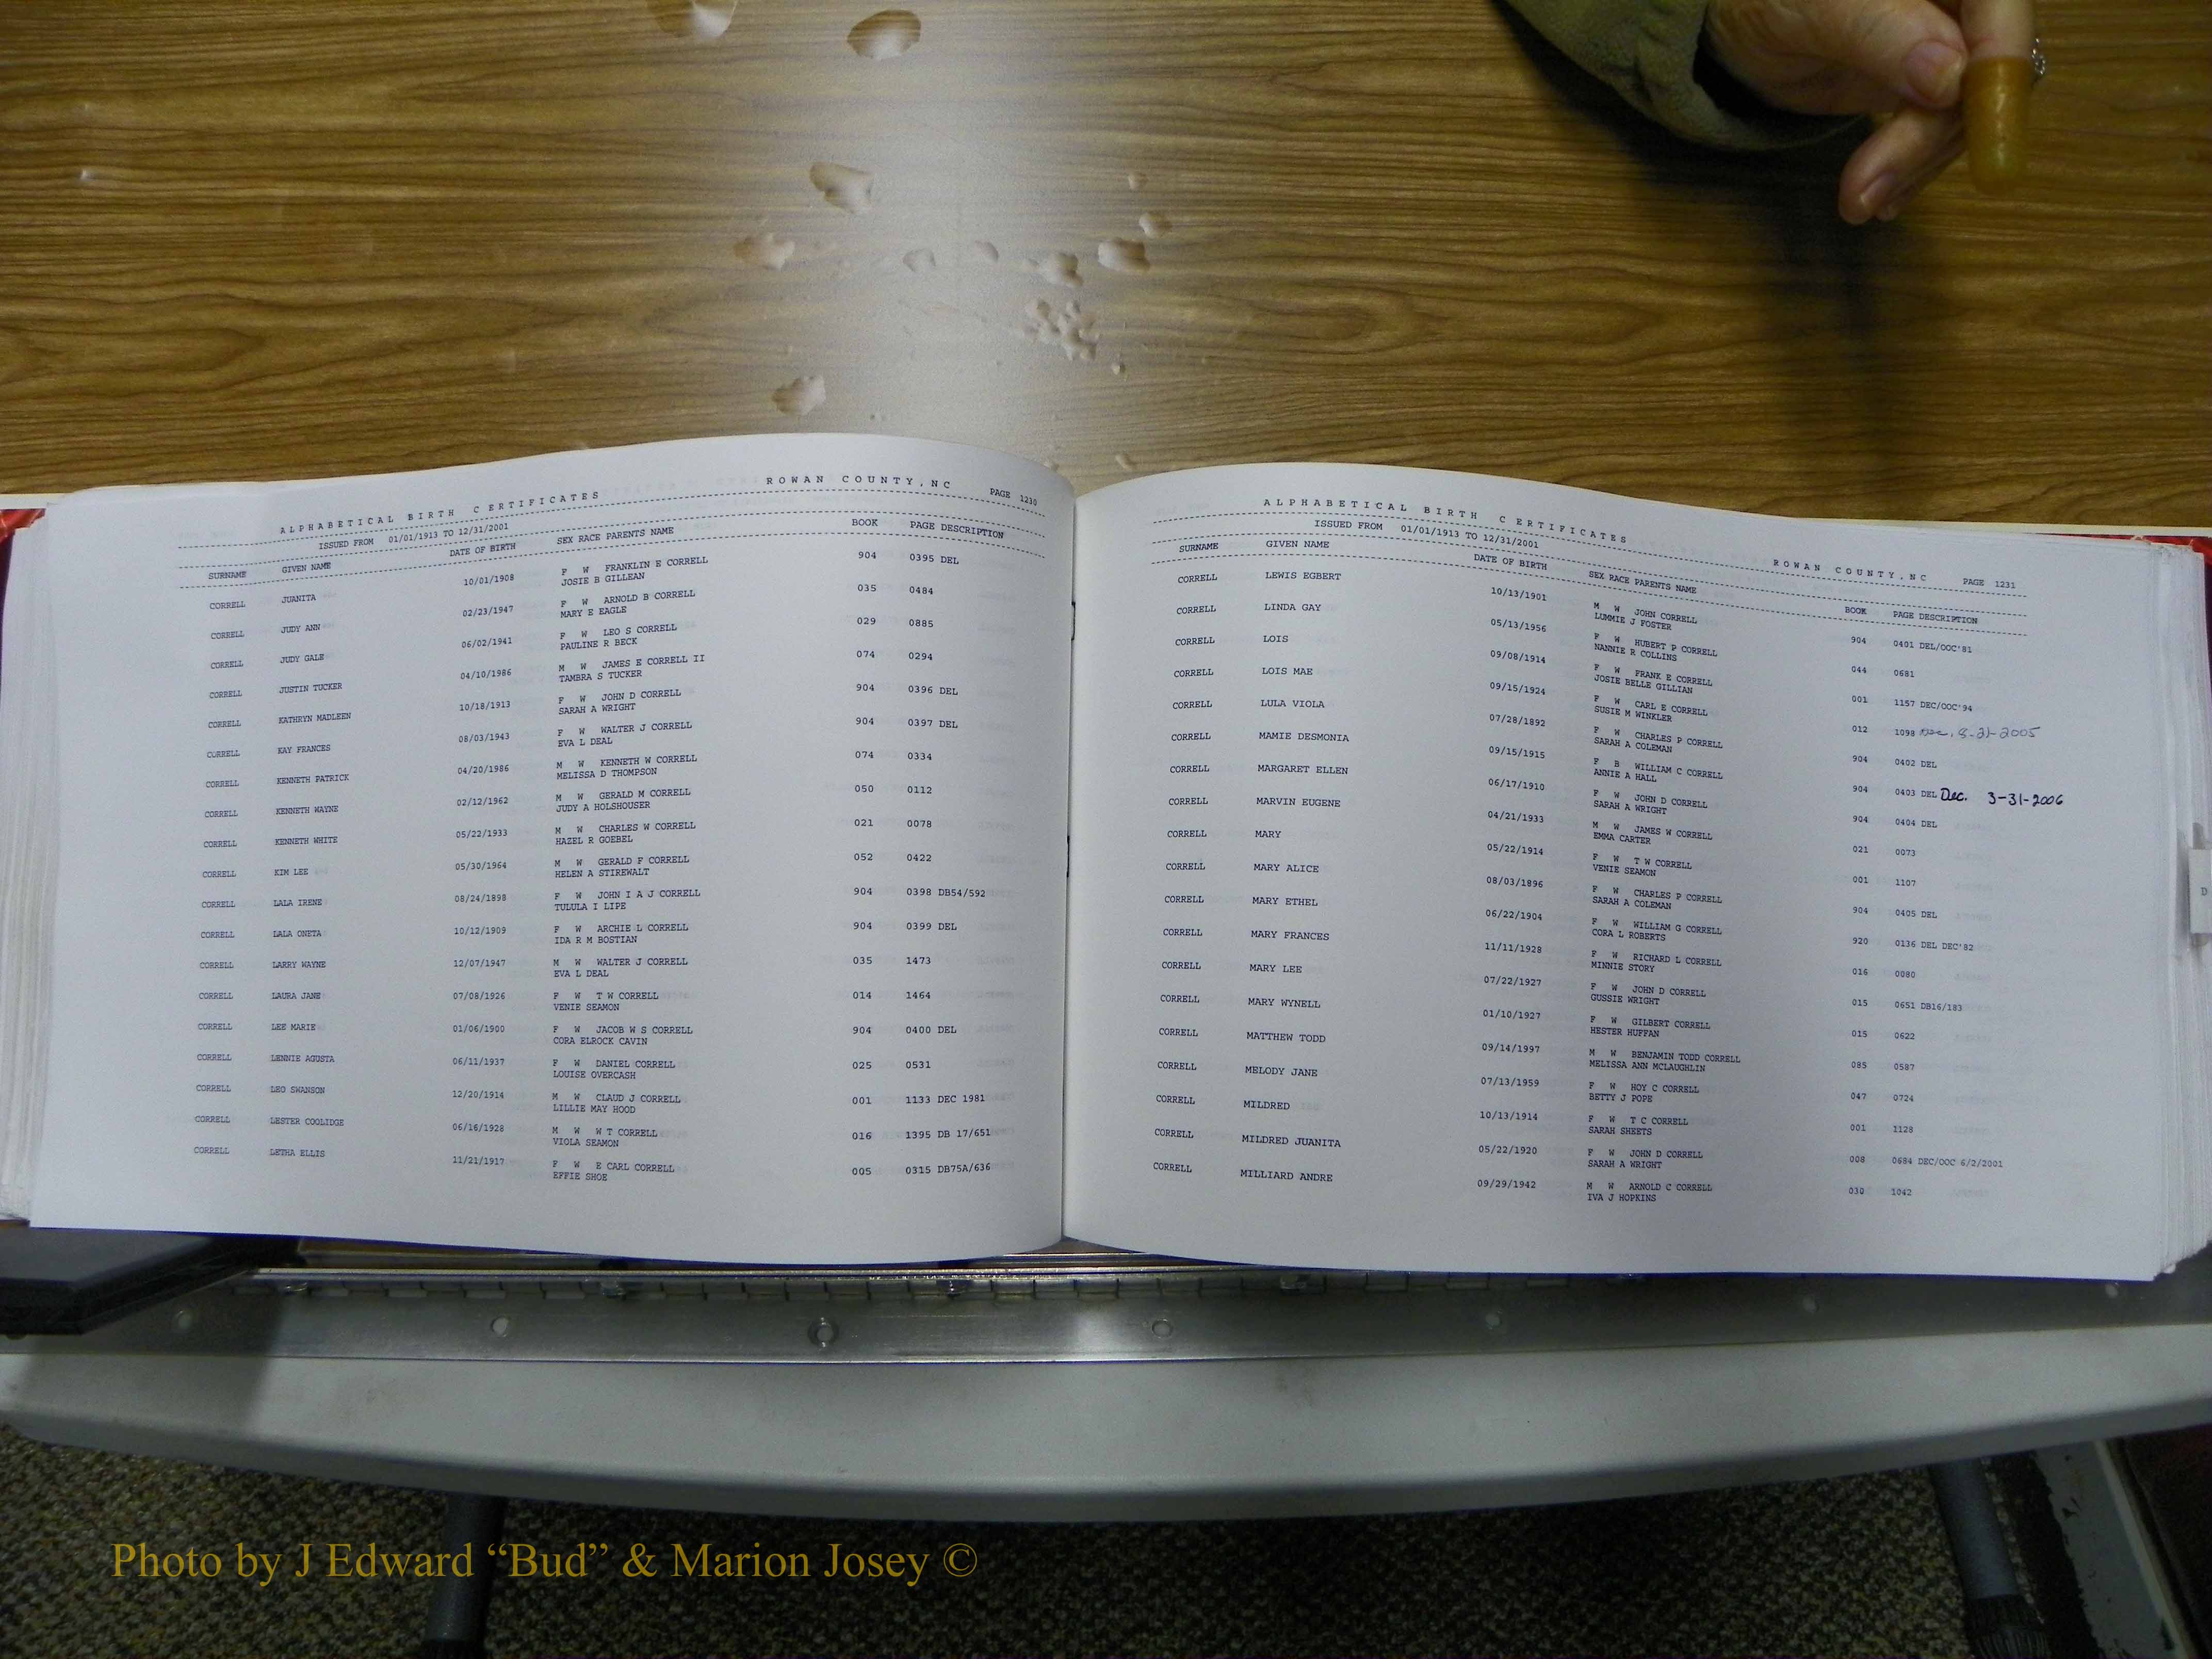 ALPHABETICAL BIRTH CERTIFICATES ROWAN COUNTY,NC PAGE 1230
ISSUED FROM 01/01/1913 TO 12/31/2001
SURNAME GIVEN NAME DATE OF BIRTH SEX RACE PARENTS NAME BOOK PAGE DESCRIPTION
CORRELL JUANITA 10/01/1908 F W FRANKLIN E CORRELL 904 0395 DEL
JOSIE B GILLEAN
CORRELL JUDY ANN 02/23/1947 F W ARNOLD B CORRELL 035 0484
MARY E EAGLE
CORRELL JUDY GALE 06/02/1941 F W LEO S CORRELL 029 0885
PAULINE R BECK
CORRELL JUSTIN TUCKER 04/10/1986 M W JAMES E CORRELL II 074 0294
TAMBRA S TUCKER
CORRELL KATHRYN MADLEEN 10/18/1913 F W JOHN D CORRELL 904 0396 DEL
SARAH A WRIGHT
CORRELL KAY FRANCES 08/03/1943 F W WALTER J CORRELL 904 0397 DEL
EVA L DEAL
CORRELL KENNETH PATRICK 04/20/1986 M W KENNETH W CORRELL 074 0334
MELISSA D THOMPSON
CORRELL KENNETH WAYNE 02/12/1962 M W GERALD M CORRELL 050 0112
JUDY A HOLSHOUSER
CORRELL KENNETH WHITE 05/22/1933 M W CHARLES W CORRELL 021 0078
HAZEL R GOEBEL
CORRELL KIM LEE 05/30/1964 M W GERALD F CORRELL 052 0422
HELEN A STIREWALT
CORRELL LALA IRENE 08/24/1898 F W JOHN I A J CORRELL 904 0398 DB54/592
TULULA I LIPE
CORRELL LALA ONETA 10/12/1909 F W ARCHIE L CORRELL 904 0399 DEL
IDA R M BOSTIAN
CORRELL LARRY WAYNE 12/07/1947 M W WALTER J CORRELL 035 1473
EVA L DEAL
CORRELL LAURA JANE 07/08/1926 F W T W CORRELL 014 1464
VENIE SEAMON
CORRELL LEE MARIE 01/06/1900 F W JACOB W S CORRELL 904 0400 DEL
CORA ELROCK CAVIN
CORRELL LENNIE AGUSTA 06/11/1937 F W DANIEL CORRELL 025 0531
LOUISE OVERCASH
CORRELL LEO SWANSON 12/20/1914 M W CLAUD J CORRELL 001 1133 DEC 1981
LILLIE MAY HOOD
CORRELL LESTER COOLIDGE 06/16/1928 M W W T CORRELL 016 1395 DB 17/651
VIOLA SEAMON
CORRELL LETHA ELLIS 11/21/1917 F W E CARL CORRELL 005 0315 DB75A/636
EFFIE SHOE
ALPHABETICAL BIRTH CERTIFICATES ROWAN COUNTY,NC PAGE 1231
ISSUED FROM 01/01/1913 TO 12/31/2001
SURNAME GIVEN NAME DATE OF BIRTH SEX RACE PARENTS NAME BOOK PAGE DESCRIPTION
CORRELL LEWIS EGBERT 10/13/1901 M W JOHN CORRELL 904 0401 DEL/OOC'81
LUMMIE J FOSTER
CORRELL LINDA GAY 05/13/1956 F W HUBERT P CORRELL 044 0681
NANNIE R COLLINS
CORRELL LOIS 09/08/1914 F W FRANK E CORRELL 001 1157 DEC/OOC'94
JOSIE BELLE GILLIAN
CORRELL LOIS MAE 09/15/1924 F W CARL E CORRELL 012 1098 Dec, 8-21-2005
SUSIE M WINKLER
CORRELL LULA VIOLA 07/28/1892 F W CHARLES P CORRELL 904 0402 DEL
SARAH A COLEMAN
CORRELL MAMIE DESMONIA 09/15/1915 F B WILLIAM C CORRELL 904 0403 DEL Dec. 3-31-2006
ANNIE A HALL
CORRELL MARGARET ELLEN 06/17/1910 F W JOHN D CORRELL 904 0404 DEL
SARAH A WRIGHT
CORRELL MARVIN EUGENE 04/21/1933 M W JAMES W CORRELL 021 0073
EMMA CARTER
CORRELL MARY 05/22/1914 F W T W CORRELL 001 1107
VENIE SEAMON
CORRELL MARY ALICE 08/03/1896 F W CHARLES P CORRELL 904 0405 DEL
SARAH A COLEMAN
CORRELL MARY ETHEL 06/22/1904 F W WILLIAM G CORRELL 920 0136 DEL DEC'82
CORA L ROBERTS
CORRELL MARY FRANCES 11/11/1928 F W RICHARD L CORRELL 016 0080
MINNIE STORY
CORRELL MARY LEE 07/22/1927 F W JOHN D CORRELL 015 0651 DB16/183
GUSSIE WRIGHT
CORRELL MARY WYNELL 01/10/1927 F W GILBERT CORRELL 015 0622
HESTER HUFFAN
CORRELL MATTHEW TODD 09/14/1997 M W BENJAMIN TODD CORRELL 085 0587
MELISSA ANN MCLAUGHLIN
CORRELL MELODY JANE 07/13/1959 F W HOY C CORRELL 047 0724
BETTY J POPE
CORRELL MILDRED 10/13/1914 F W T C CORRELL 001 1128
SARAH SHEETS
CORRELL MILDRED JUANITA 05/22/1920 F W JOHN D CORRELL 008 0684 DEC/OOC 6/2/2001
SARAH A WRIGHT
CORRELL MILLIARD ANDRE 09/29/1942 M W ARNOLD C CORRELL 030 1042
IVA J HOPKINS
D
Photo by J Edward “Bud” & Marion Josey ©